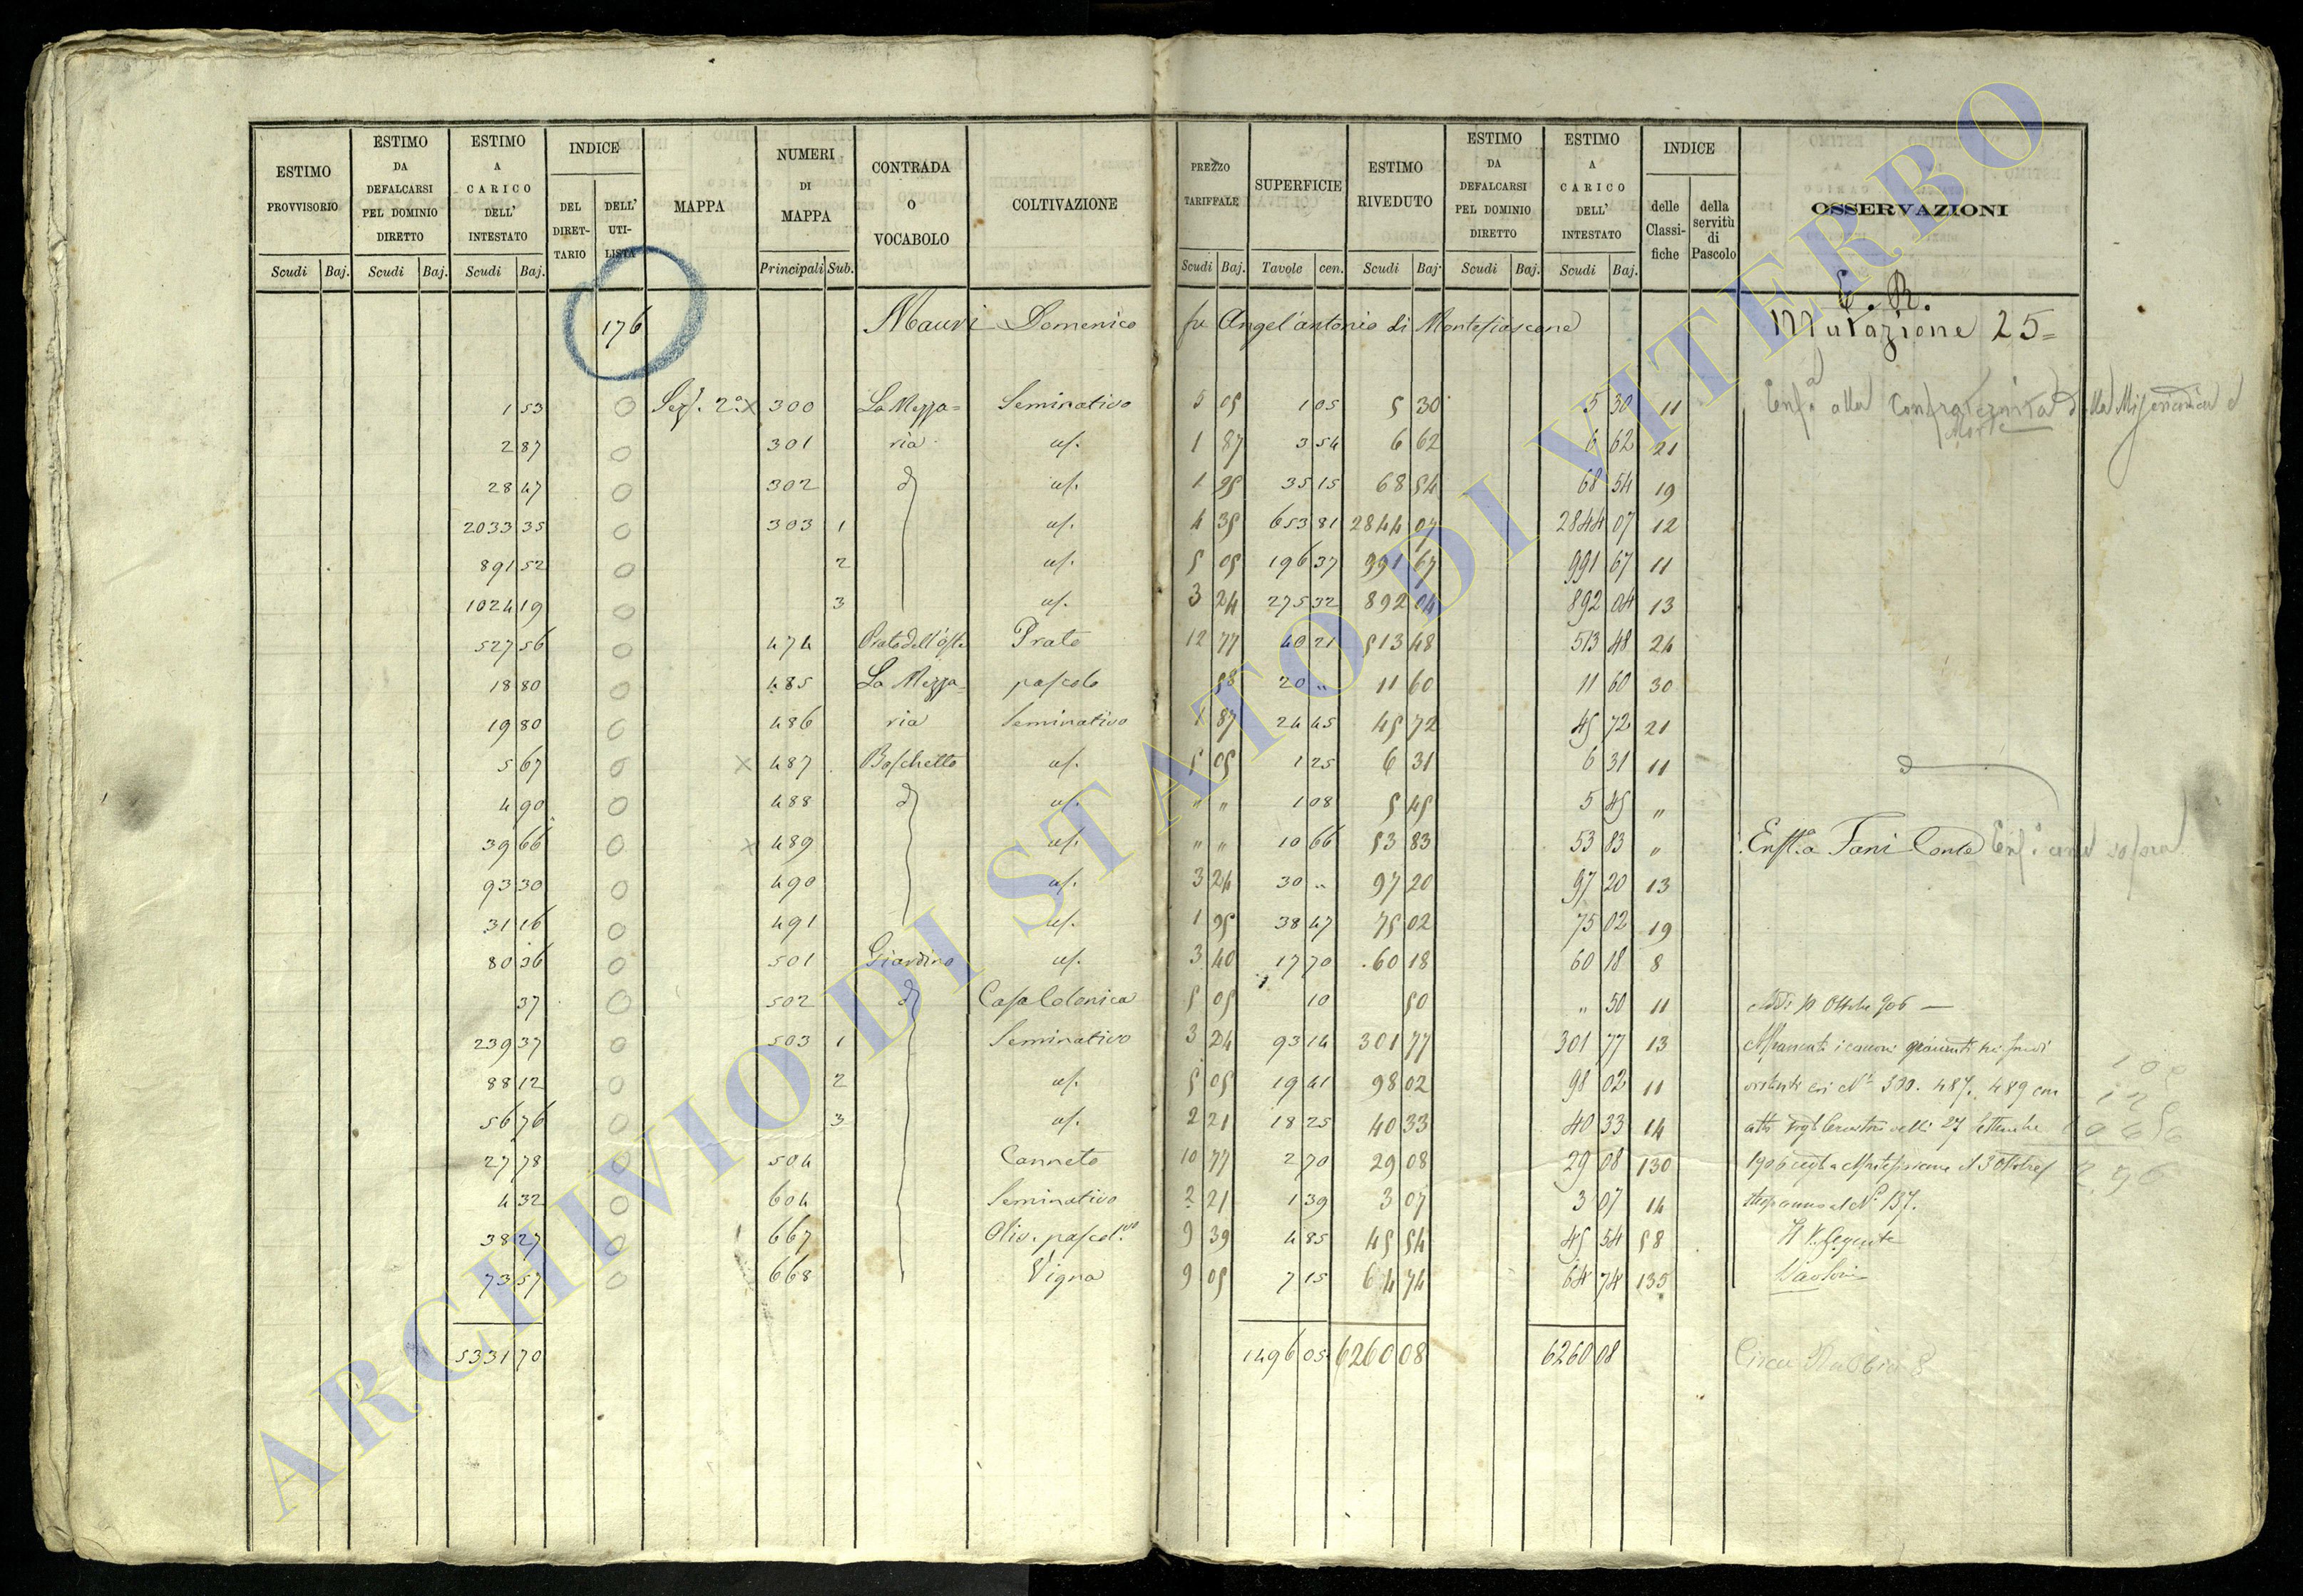 ESTIMO PROVVISORIO | ESTIMO DA DEFALCARSI PEL DOMINIO DIRETTO | ESTIMO A CARICO DELL' INTESTATO | INDICE | MAPPA | NUMERI DI MAPPA | CONTRADA O VOCABOLO | COLTIVAZIONE | PREZZO TARIFFALE | SUPERFICIE | ESTIMO RIVEDUTO | ESTIMO DA DEFALCARSI PEL DOMINIO DIRETTO | ESTIMO A CARICO DELL' INTESTATO | INDICE | OSSERVAZIONI
DEL DIRETTARIO | DELL' UTILISTA | delle Classifiche | della servitù di Pascolo
Scudi Baj. | Scudi Baj. | Scudi Baj. | Principali Sub. | Scudi Baj. | Tavole cen. | Scudi Baj. | Scudi Baj. | Scudi Baj.
176 Mauri Domenico fu Angel'antonio di Montefiascone Mutazione 25=
1 53 0 Sez. 2a x 300 La Mezza= Seminativo 5 05 1 05 5 30 5 30 11 alla Confraternita della Misericordia e Morte
2 87 0 301 ria us. 1 87 3 54 6 62 6 62 21
28 47 0 302 d us. 1 95 35 15 68 54 68 54 19
2033 35 0 303 1 us. 4 35 653 81 2844 07 2844 07 12
891 52 0 2 us. 5 05 196 37 991 67 991 67 11
1024 19 0 3 us. 3 24 275 32 892 04 892 04 13
527 56 0 474 Prato dell'Oste Prato 12 77 40 21 513 48 513 48 24
18 80 0 485 La Mezza= pascolo 58 20 " 11 60 11 60 30
19 80 0 486 ria Seminativo 1 87 24 45 45 72 45 72 21
5 67 0 x 487 Boschetto us. 5 05 1 25 6 31 6 31 11
4 90 0 488 d us. " " 1 08 5 45 5 45 "
39 66 0 x 489 us. " " 10 66 53 83 53 83 " Enft.a Fani Conte
93 30 0 490 us. 3 24 30 " 97 20 97 20 13
31 16 0 491 us. 1 95 38 47 75 02 75 02 19
80 36 0 501 Giardino us. 3 40 17 70 60 18 60 18 8
37 0 502 d Casa Colonica 5 05 10 50 " 50 11
239 37 0 503 1 Seminativo 3 24 93 14 301 77 301 77 13 Affrancati i canoni gravanti
88 12 0 2 us. 5 05 19 41 98 02 98 02 11 300. 487. 489
56 76 0 3 us. 2 21 18 25 40 33 40 33 14 27 Settembre
27 78 0 504 Canneto 10 77 2 70 29 08 29 08 130 1906
4 32 0 604 Seminativo 2 21 1 39 3 07 3 07 14 al N° 137.
38 27 0 667 Oliv. pascol.vo 9 39 4 85 45 54 45 54 58 Il Reggente
73 57 0 668 Vigna 9 05 7 15 64 74 64 74 135
5331 70 1496 05 6260 08 6260 08
ARCHIVIO DI STATO DI VITERBO